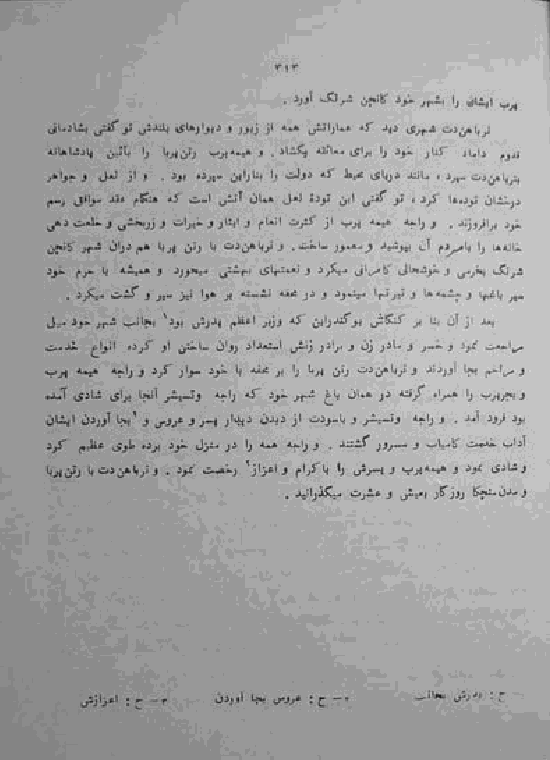 ۳۱۳
پرب ایشان را بشهر خود کانچن شرنگ آورد .
نرباهن‌دت شهری دید که عماراتش همه از زیور و دیوارهای بلندش تو گفتی بشادمانی
قدوم داماد کنار خود را برای معانقه بکشاد . و هیمه‌پرب رتن‌پربا را بآئین پادشاهانه
بنرباهن‌دت سپرد ، مانند دریای محیط که دولت را بناراین سپرده بود . و از لعل و جواهر
درخشان توده‌ها کرد ، تو گفتی این تودهٔ لعل همان آتش است که هنگام عقد موافق رسم
خود برافروزند . و راجه هیمه پرب از کثرت انعام و ایثار و خیرات و زربخشی و خلعت دهی
خانه‌ها را بامردم آن بپوشید و معمور ساخت . و نرباهن‌دت با رتن پربا هم دران شهر کانچن
شرنگ بخرمی و خوشحالی کامرانی میکرد و نعمتهای بهشتی میخورد و همیشه با حرم خود
سیر باغها و چشمه‌ها و تیرتها مینمود و در محفه نشسته بر هوا نیز سیر و گشت میکرد .
بعد از آن بنا بر کنگاش یوگندراین که وزیر اعظم پدرش بود۱ بجانب شهر خود میل
مراجعت نمود و خسر و مادر زن و برادر زنش استعداد روان ساختن او کرده انواع خدمت
و مراحم بجا آوردند و نرباهن‌دت رتن پربا را بر محفه با خود سوار کرد و راجه هیمه پرب
و بجرپرب را همراه گرفته در همان باغ شهر خود که راجه وتسیشر آنجا برای شادی آمده
بود فرود آمد . و راجه وتسیشر و باسودت از دیدن دیدار پسر و عروس و ۲بجا آوردن ایشان
آداب خدمت کامیاب و مسرور گشتند . و راجه همه را در منزل خود برده طوی عظیم کرد
و شادی نمود و هیمه‌پرب و پسرش را باکرام و اعزاز۳ رخصت نمود . و نرباهن‌دت با رتن‌پربا
و مدن‌منچکا روزگار بعیش و عشرت میگذرانید .
ح : بجانب ۲ — ح : عروس بجا آوردن ۳ — ح : اعزازش